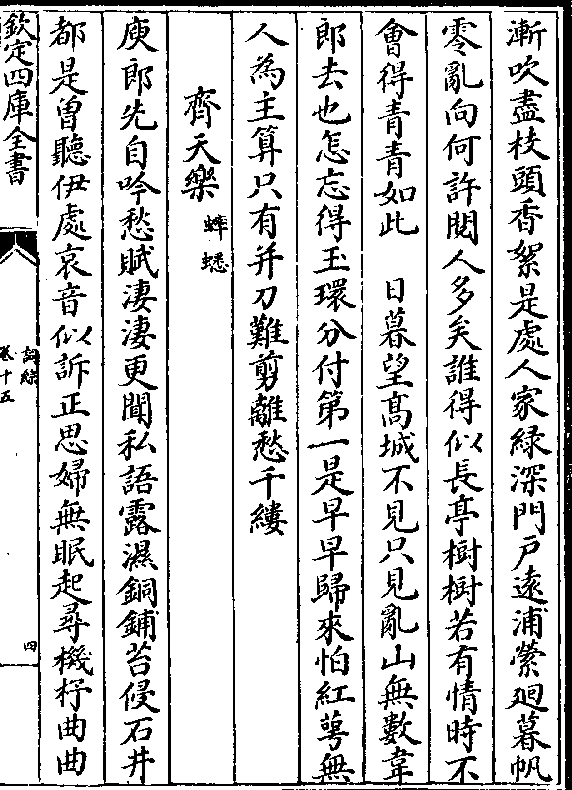 漸吹盡枝頭香絮是處人家緑深門戶遠浦縈廻暮帆
零亂向何許閱人多矣誰得似長亭樹樹若有情時不
會得青青如此　日暮望髙城不見只見亂山無數韋
郎去也怎忘得玉環分付第一是早早歸來怕紅萼無
人為主算只有并刀難剪離愁千縷
齊天樂 蟀蟋
庾郎先自吟愁賦淒淒更聞私語露濕銅鋪苔侵石井
都是曾聽伊處哀音似訴正思婦無眠起尋機杼曲曲
欽定四庫全書
詞綜
卷十五
四